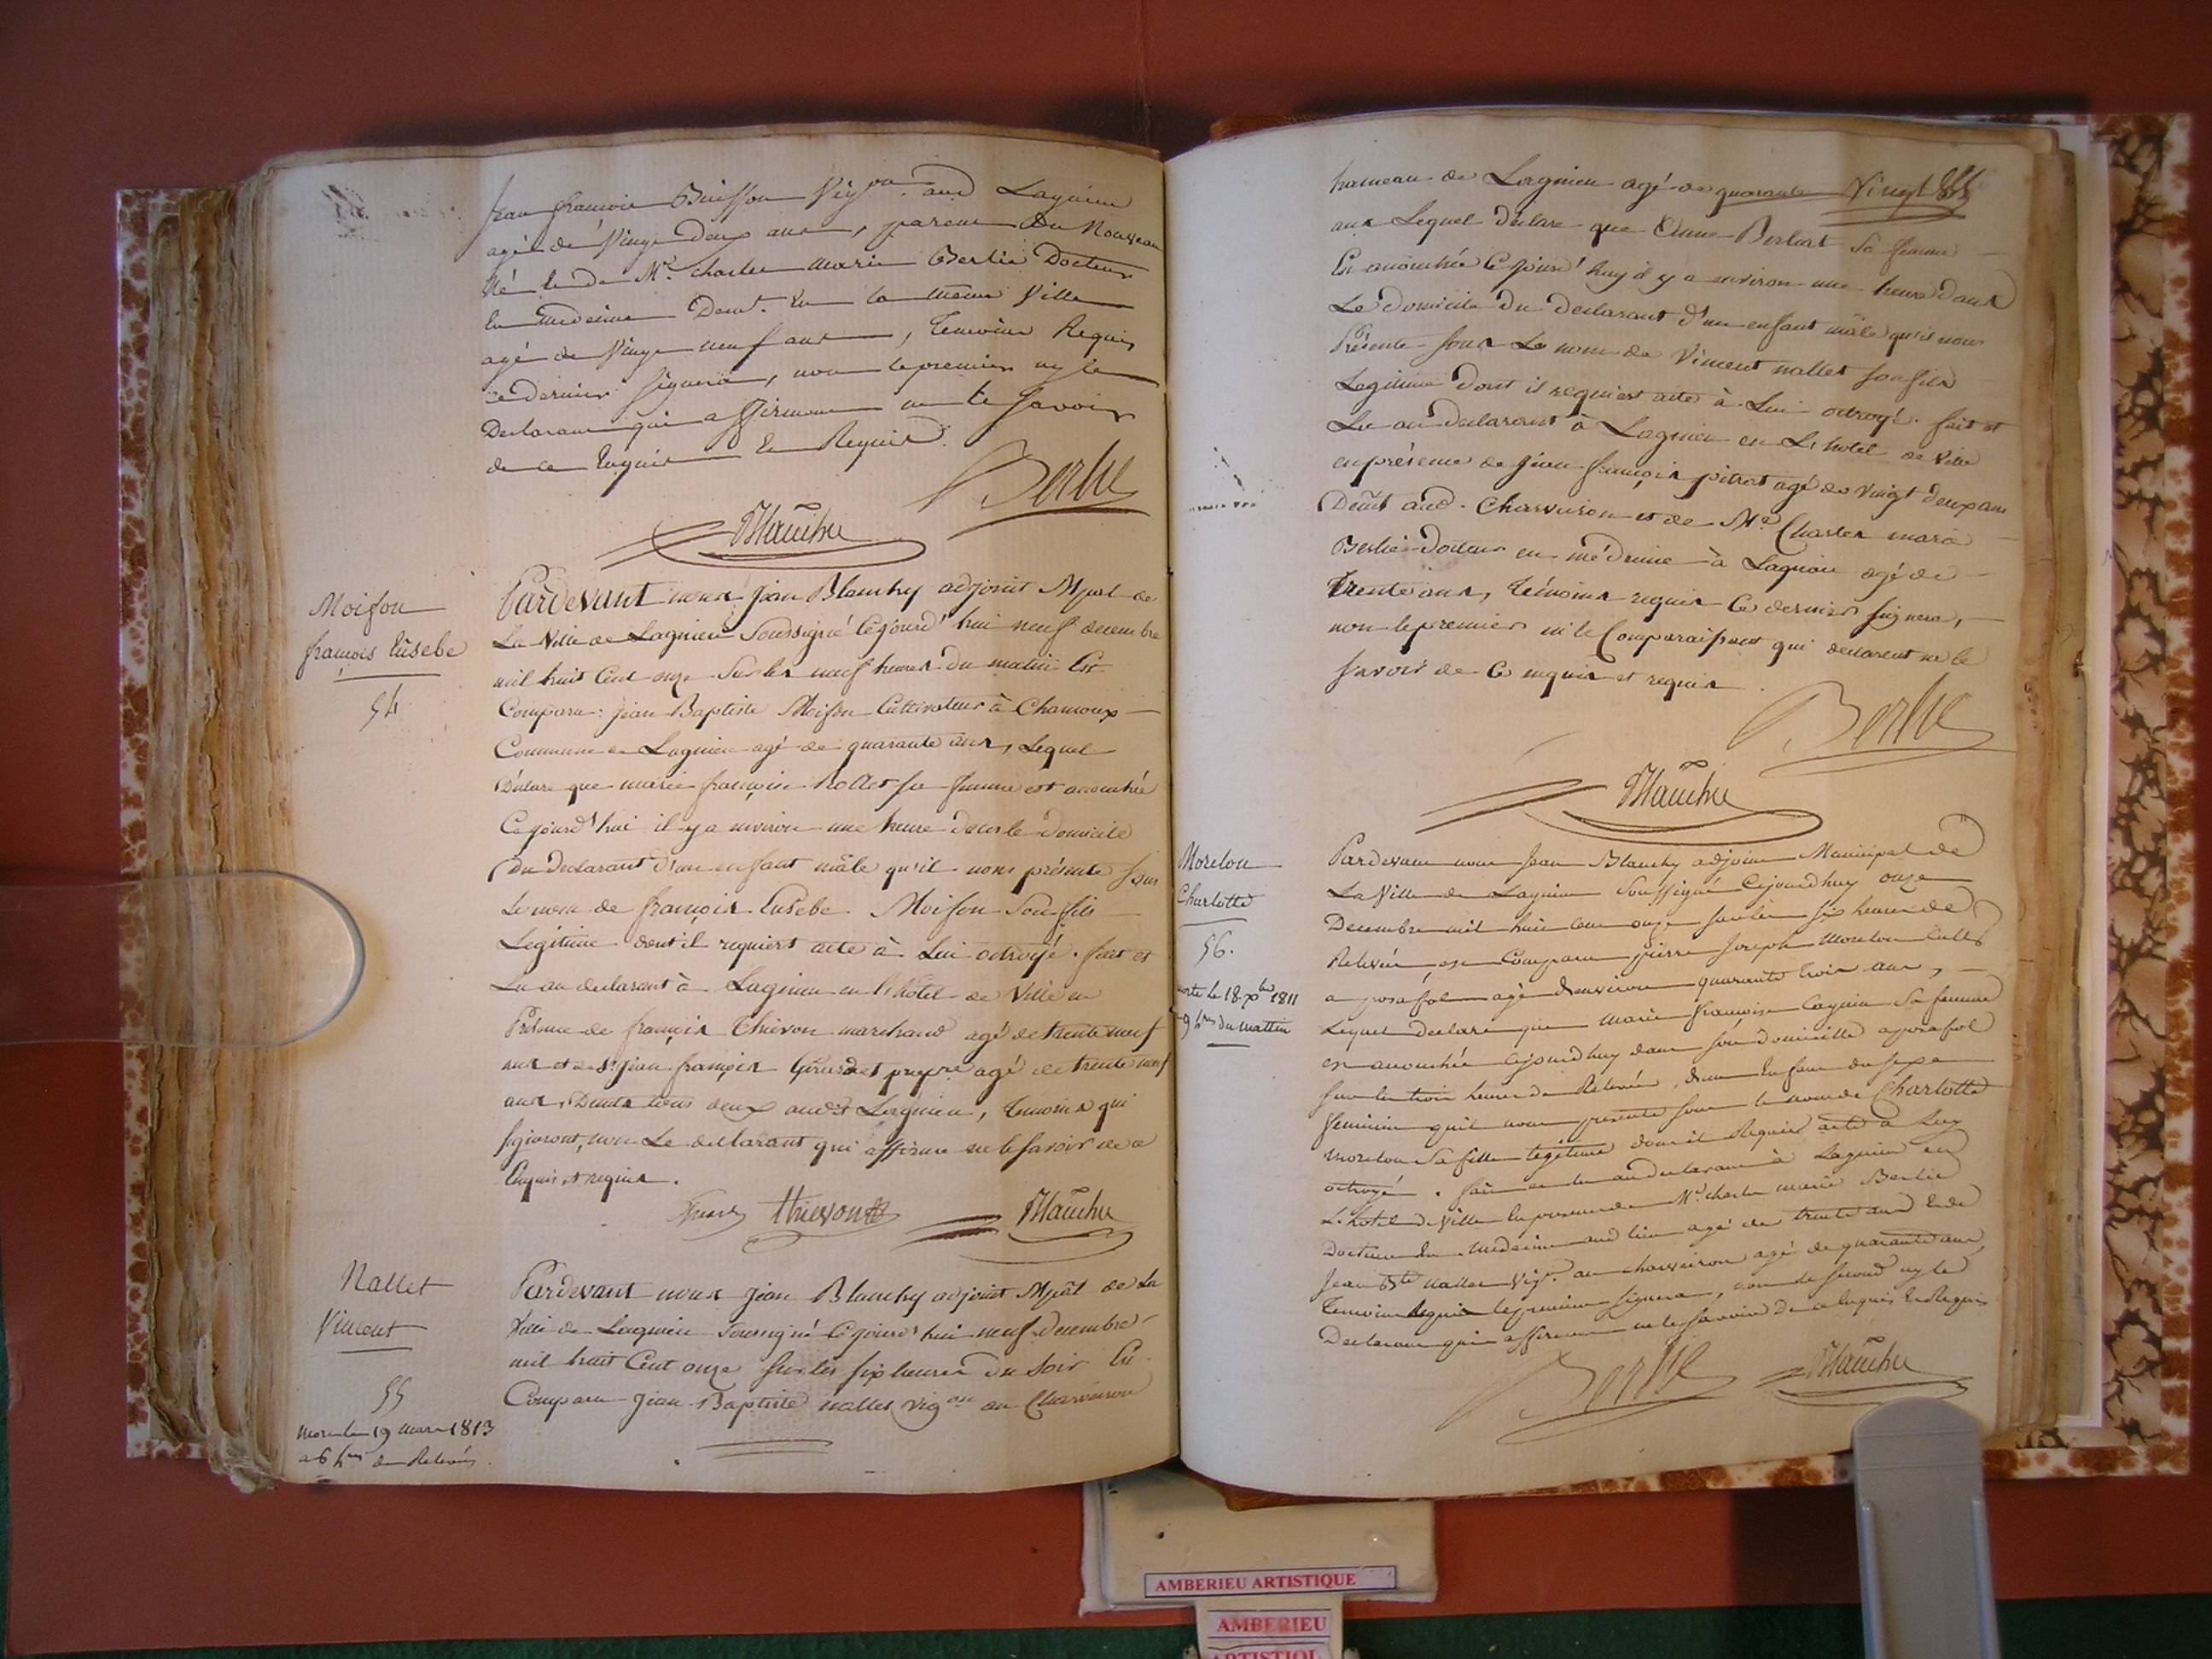 Jean françois Buisson Vigon aud Lagnieu
agé de Vingt Deux ans, parent du Nouveau
Né et de Mr. charles marie Berlié Docteur
En Medecine Demt. En la meme Ville
agé de Vingt neuf ans, temoins Requis
ce dernier Signera, non le premier ny le
Declarant qui affirment ne le Savoir
de ce Enquis Et Requis.
Berlié
Blanchy
Moison
françois Eusebe
54
Pardevant nous Jean Blanchy adjoint Mpal de
La Ville de Lagnieu Soussigné Cejourd'hui neuf decembre
mil huit Cent onze Sur les neuf heures du matin Est
Comparu: jean Baptiste Moison Cultivateur à Chamoux
Commune de Lagnieu agé de quarante ans, Lequel
Déclare que marie françoise sa femme est accouchée
Cejourd'hui il y a environ une heure dans le domicile
Du Declarant d'un enfant mâle qu'il nous présente sous
Le nom de françois Eusebe Moison Son fils
Légitime dont il requiert acte à Lui octroyé. fait et
Lu au declarant à Lagnieu en l'hôtel de Ville en
Présence de françois Thievon marchand agé de trente neuf
ans et de Sr. jean françois agé de trente neuf
ans, Demts tous deux aud Lagnieu, temoins qui
signeront, non Le declarant qui affirme ne le savoir de ce
Enquis et requis.
thievon
Blanchy
Nallet
Vincent
55
mort le 19 mars 1813
a 6 hres de Relevée
Pardevant nous Jean Blanchy adjoint Mpal de La
Ville de Lagnieu Soussigné Cejourd'hui neuf decembre
mil huit Cent onze Sur les six heures du soir Est
Comparu Jean Baptiste nallet vigon au Charveiron
hameau de Lagnieu agé de quarante Vingt
ans Lequel declare que Anne Sa femme
Est accouchée Cejourd'huy il y a environ une heure dans
Le domicile du declarant d'un enfant mâle qu'il nous
Présente sous Le nom de Vincent nallet son fils
Legitime dont il requiert acte à Lui octroyé. fait et
Lu au declarant à Lagnieu en L'hotel de Ville
en présence de jean françois pitrat agé de vingt deux ans
Demt aud. Charveiron et de Mr. Charles marie
Berlié docteur en médecine à Lagnieu agé de
Trente ans, témoins requis Ce dernier signera,
non le premier ni le Comparaissant qui declarent ne le
savoir de Ce enquis et requis.
Berlié
Blanchy
Morelon
Charlotte
56.
morte le 18 Xbre 1811
9 hres du mattin
Pardevant nous Jean Blanchy adjoint Municipal de
La Ville de Lagnieu Soussigné Cejourdhuy onze
Decembre mil huit cent onze sur les six heures de
Relevée, est Comparu pierre Joseph Morelon Cultr
a posafol agé d'environ quarante trois ans,
Lequel declare que Marie françoise Sa femme
est accouchée cejourdhuy dans son domicille a posafol
sur les trois heures de Relevée, d'un Enfant du sexe
feminin quil nous presente sous le nom de Charlotte
morelon Sa fille légitime dont il Requiert acte a Luy
octroyé. fait et lu au declarant à Lagnieu en
L'hotel de Ville En presence de Mr. charles marie Berlié
Docteur En Medecine aud lieu agé de trente ans Et de
Jean Bte nallet Vign. au charveiron agé de quarante ans,
temoins Requis le premier Signera, non le second ny le
Declarant qui affirment ne le Savoir de ce Enquis Et Requis
Berlié
Blanchy
AMBERIEU ARTISTIQUE
AMBERIEU
ARTISTIQUE